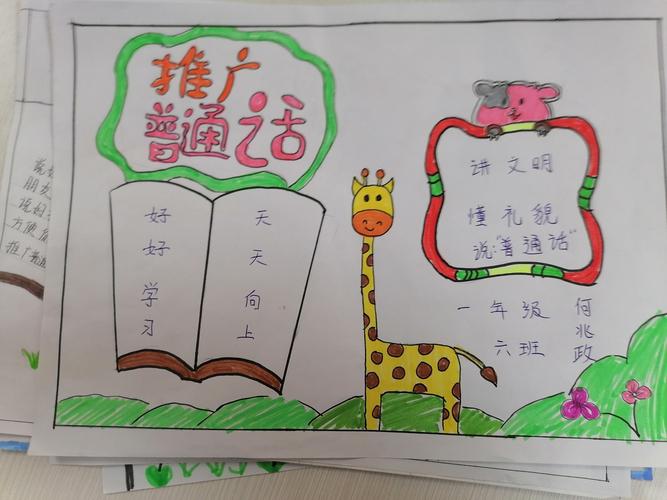 推广
普通话
好好学习
天天向上
讲文明
懂礼貌
说:"普通话"
一年级
六班
何兆政
说
朋友
说好
方便
推广